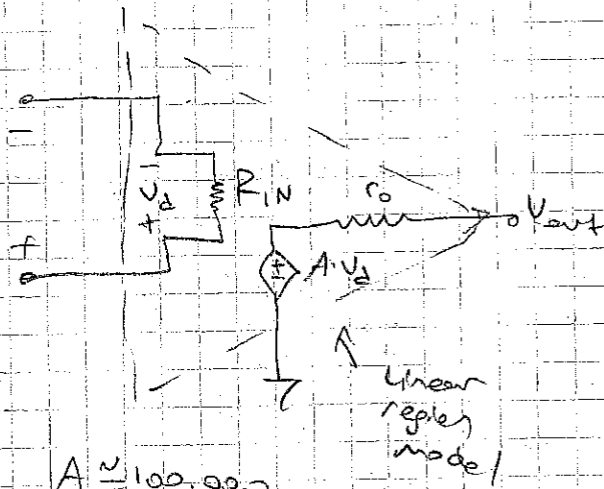 −
− 
V_d
+
R_IN
+
r_o
V_out
±
A·V_d
Linear
region
model
A ≃ 100,000